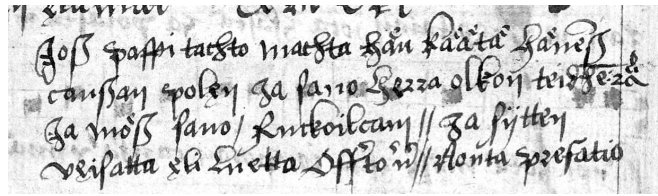 Josß pappi tachto machta hän käätä hänesß
canßan polen Ja sano herra olkon teidhe rä
Ja mösß sano / Ruckoilcam // Ja sijtten
veisatta eli luetta Offto // Nonta prefatio